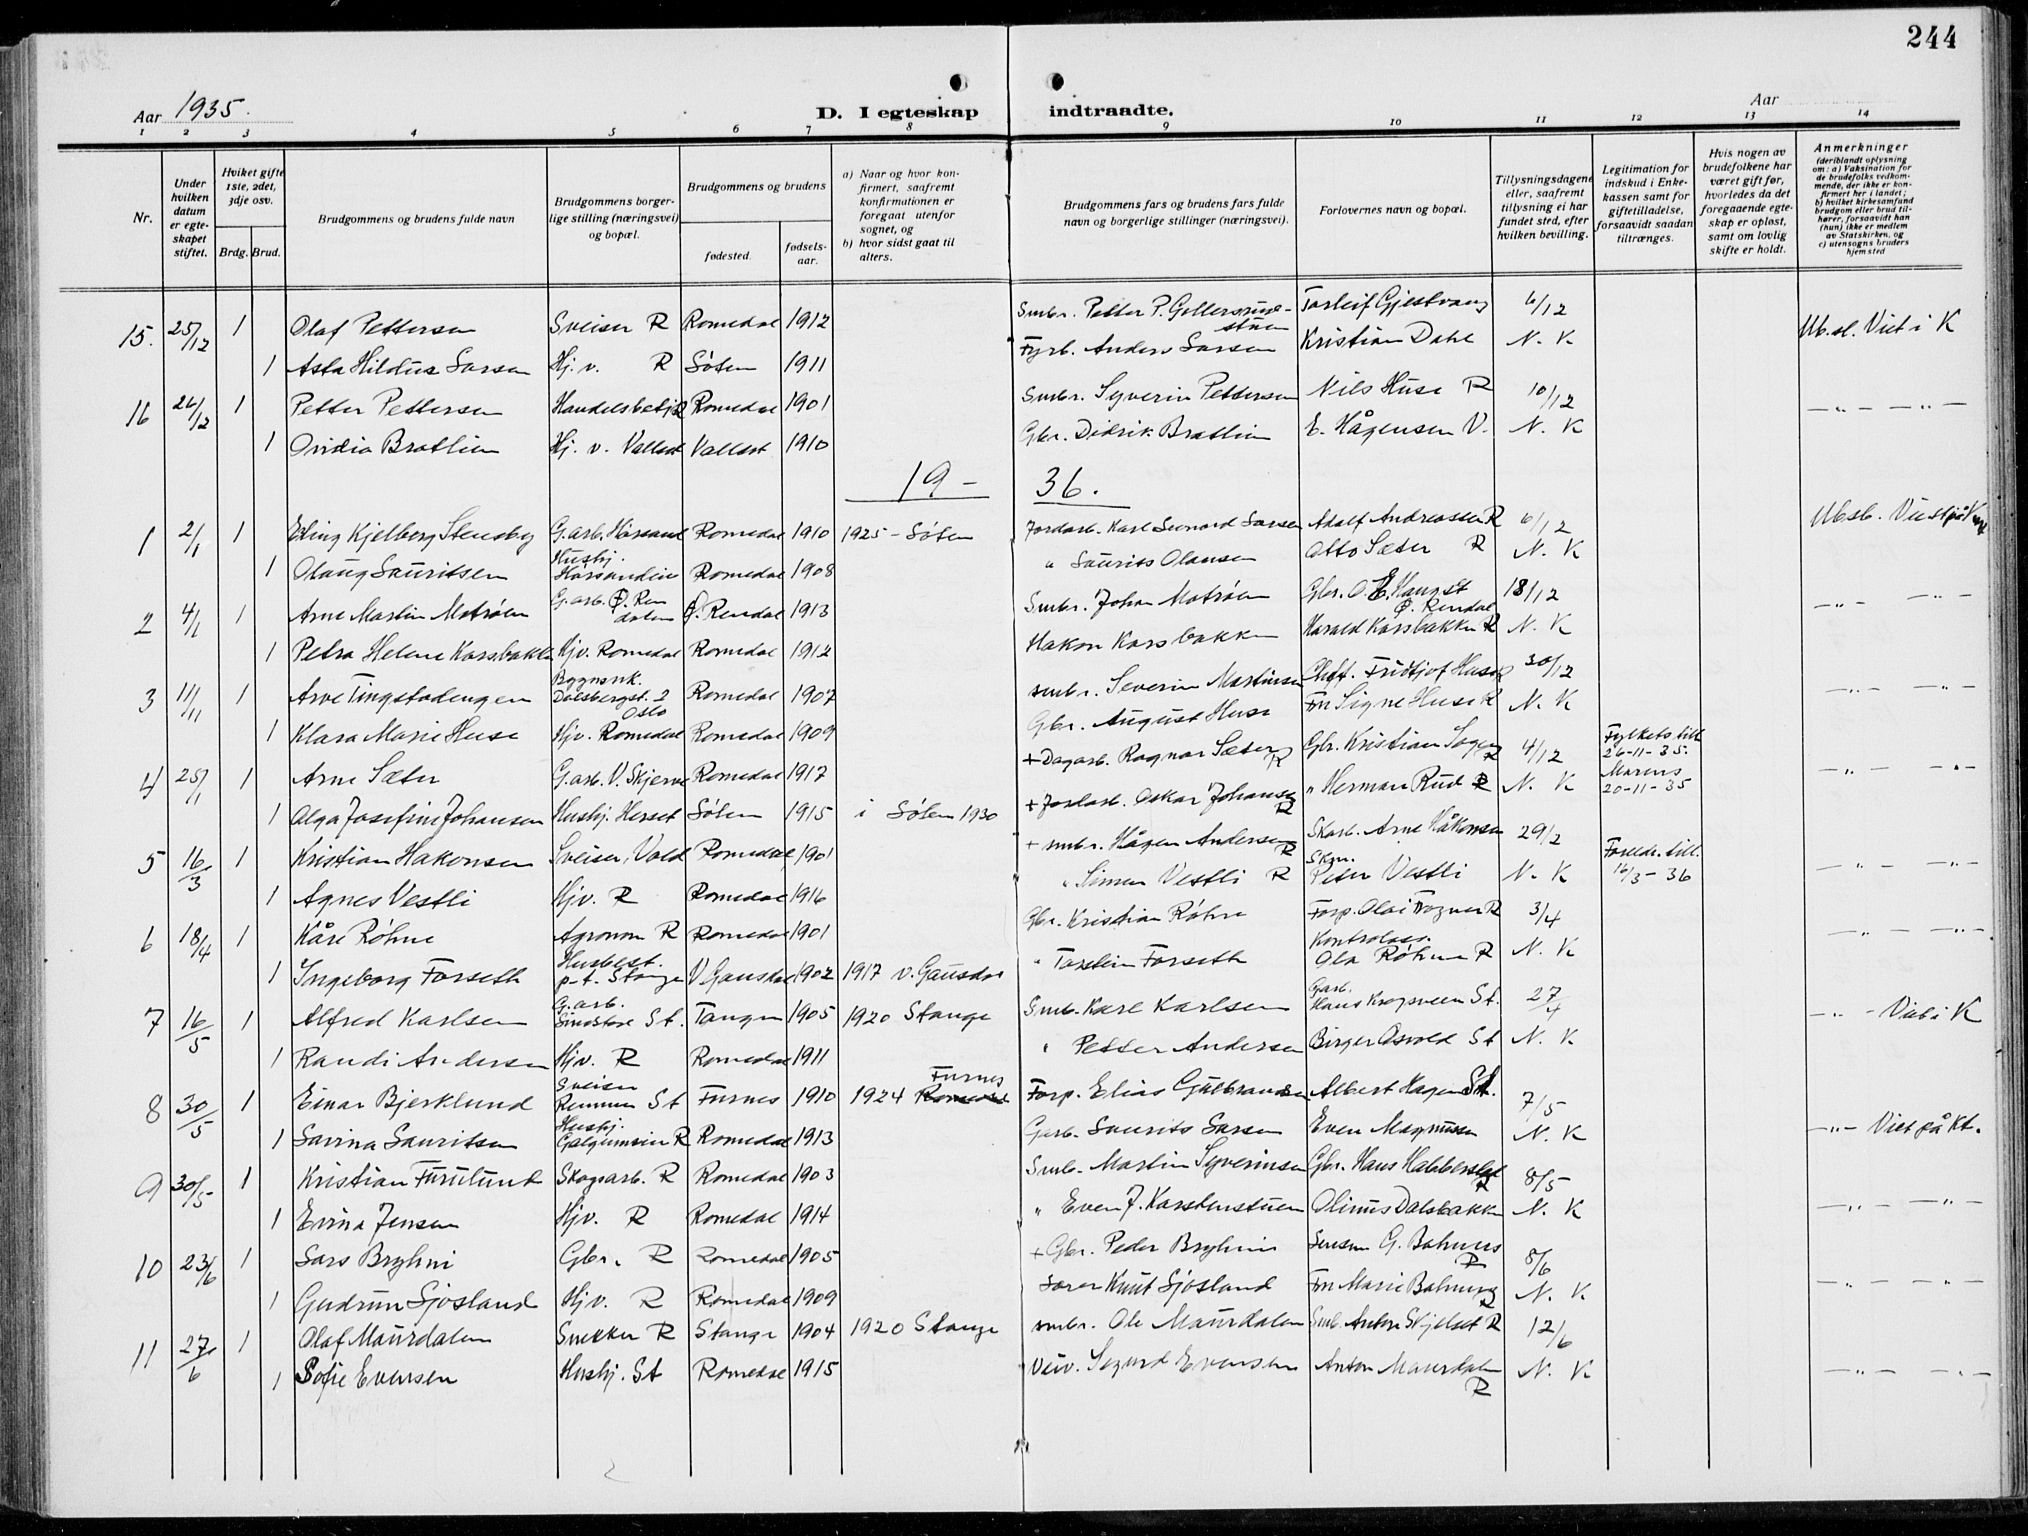 244
Aar 1935.
D. I egteskap indtraadte.
Aar
1 2 3 4 5 6 7 8 9 10 11 12 13 14
Nr.
Under hvilken datum er egteskapet stiftet.
Hviket gifte 1ste, 2det, 3dje osv.
Brdg. Brud.
Brudgommens og brudens fulde navn
Brudgommens borgerlige stilling (næringsvei) og bopæl.
Brudgommens og brudens
fødested.
fødselsaar.
a) Naar og hvor konfirmert, saafremt konfirmationen er foregaat utenfor sognet, og
b) hvor sidst gaat til alters.
Brudgommens fars og brudens fars fulde navn og borgerlige stillinger (næringsvei).
Forlovernes navn og bopæl.
Tillysningsdagene eller, saafremt tillysning ei har fundet sted, efter hvilken bevilling.
Legitimation for indskud i Enkekassen samt for giftetilladelse, forsaavidt saadan tiltrænges.
Hvis nogen av brudefolkene har været gift før, hvorledes da det foregaaende egteskap er opløst, samt om lovlig skifte er holdt.
Anmerkninger
(deriblandt oplysning om: a) Vaksination for de brudefolks vedkommende, der ikke er konfirmert her i landet; b) hvilket kirkesamfund brudgom eller brud tilhører, forsaavidt han (hun) ikke er medlem av Statskirken, og c) utensogns bruders hjemsted
15. 25/12 1 Olaf Pettersen Sveiser R Romedal 1912 Smbr. Petter P. Torleif Gjestvang 6/12 Ub.sl. Viet i K
1 Asta Hildur Larsen Hj. v. R Søten 1911 Fyrb. Anders Larsen Kristian Dahl N. K
16 26/12 1 Petter Pettersen Romedal 1901 Smbr. Syverin Pettersen Nils Huse R 10/12 -"- -"-
1 Ovidia Bratlien Hj. v. Vallset Vallset 1910 Gbr. Didrik Bratlien E. Hågensen V. N. K
19 - 36.
1 2/1 1 Erling Kjelberg Stensby G.arb. Romedal 1910 1925 - Søten Jordarb. Karl Leonard Larsen Adolf Andreassen R 6/12 Ub.sl.
1 Olaug Lauritsen Hushj. Romedal 1908 " Laurits Olausen Otto Sæter R N. K
2 4/1 1 Arne Martin Motrøen G.arb. Ø. Rendalen Ø. Rendal 1913 Smbr. Johan Motrøen Gbr. O. E. Haugset Ø. Rendal 18/12 -"- -"-
1 Petra Helene Karsbakken Hjv. Romedal Romedal 1912 Hakon Karsbakken Harald Karsbakken R N. K
3 11/1 1 Arve Tingstadengen Bygnsnk. Dalsbergst. 2 Oslo Romedal 1907 smbr. Severin Martinsen Fridtjof Huse 30/12 -"- -"-
1 Klara Marie Huse Hjv. Romedal Romedal 1909 Gbr. August Huse Frk Signe Huse R N. K
4 25/1 1 Arne Sæter G.arb. V. Skjerve Romedal 1917 + Dagarb. Ragnar Sæter R Gbr. Kristian R 4/12 Fylkets till 26-11-35. -"- -"-
1 Olga Josefine Johansen Hushj. Herset Søten 1915 i Søten 1930 + Jordarb. Oskar Johansen R " Herman Rud R N. K Morens 20-11-35
5 16/3 1 Kristian Hakonsen Sveiser, Vold Romedal 1901 + smbr. Hågen Andersen R Skarb. Arne Håkonsen 29/2 Foreldr. till. 16/3-36 -"- -"-
1 Agnes Vestli Hjv. R Romedal 1916 " Simen Vestli R Peter Vestli N. K
6 18/4 1 Kåre Røhne Agronom R Romedal 1901 Gbr. Kristian Røhne Forp. Olai R 3/4 -"- -"-
1 Ingeborg Forseth Husbest. p.t. Stange V Gausdal 1902 1917 v. Gausdal " Torstein Forseth Kontrolass. Ola Røhne R N. K
7 16/5 1 Alfred Karlsen G.arb. St. Tangen 1905 1920 Stange Smb. Karl Karlsen Garb. Hans Krogsveen St. 27/4 -"- Viet i K
1 Randi Andersen Hjv. R Romedal 1911 " Petter Andersen Birger Osvold St N. K
8 30/5 1 Einar Bjerklund Sveiser Remmen St Furnes 1910 1924 Furnes Romedal Forp. Elias Gulbrandsen Albert Hagen St. 7/5
1 Lavina Lauritsen Hushj. Galgumsein R Romedal 1913 Garb. Laurits Larsen Even Magnussen N. K -"- Viet på Kt.
9 30/5 1 Kristian Furulund Skogsarb. R Romedal 1903 Smb. Martin Syverinsen Gbr. Hans R 8/5
1 Evina Jensen Hjv. R Romedal 1914 " Even J. Karstenstuen Olinus Dalsbakken N. K -"- -"-
10 23/6 1 Lars Bryhni Gbr. R Romedal 1905 + Gbr. Peder Bryhni G. R 8/6
1 Gudrun Sjøsland Hjv. R Romedal 1909 Lærer Knut Sjøsland Frk Marie R N. K -"- -"-
11 27/6 1 Olaf Maurdalen Snekker R Stange 1904 1920 Stange smbr. Ole Maurdalen Smb. Anton Skjelset R 12/6
1 Sofie Evensen Hushj. St Romedal 1915 Veiv. Sigurd Evensen Anton Maurdalen R N. K -"- -"-